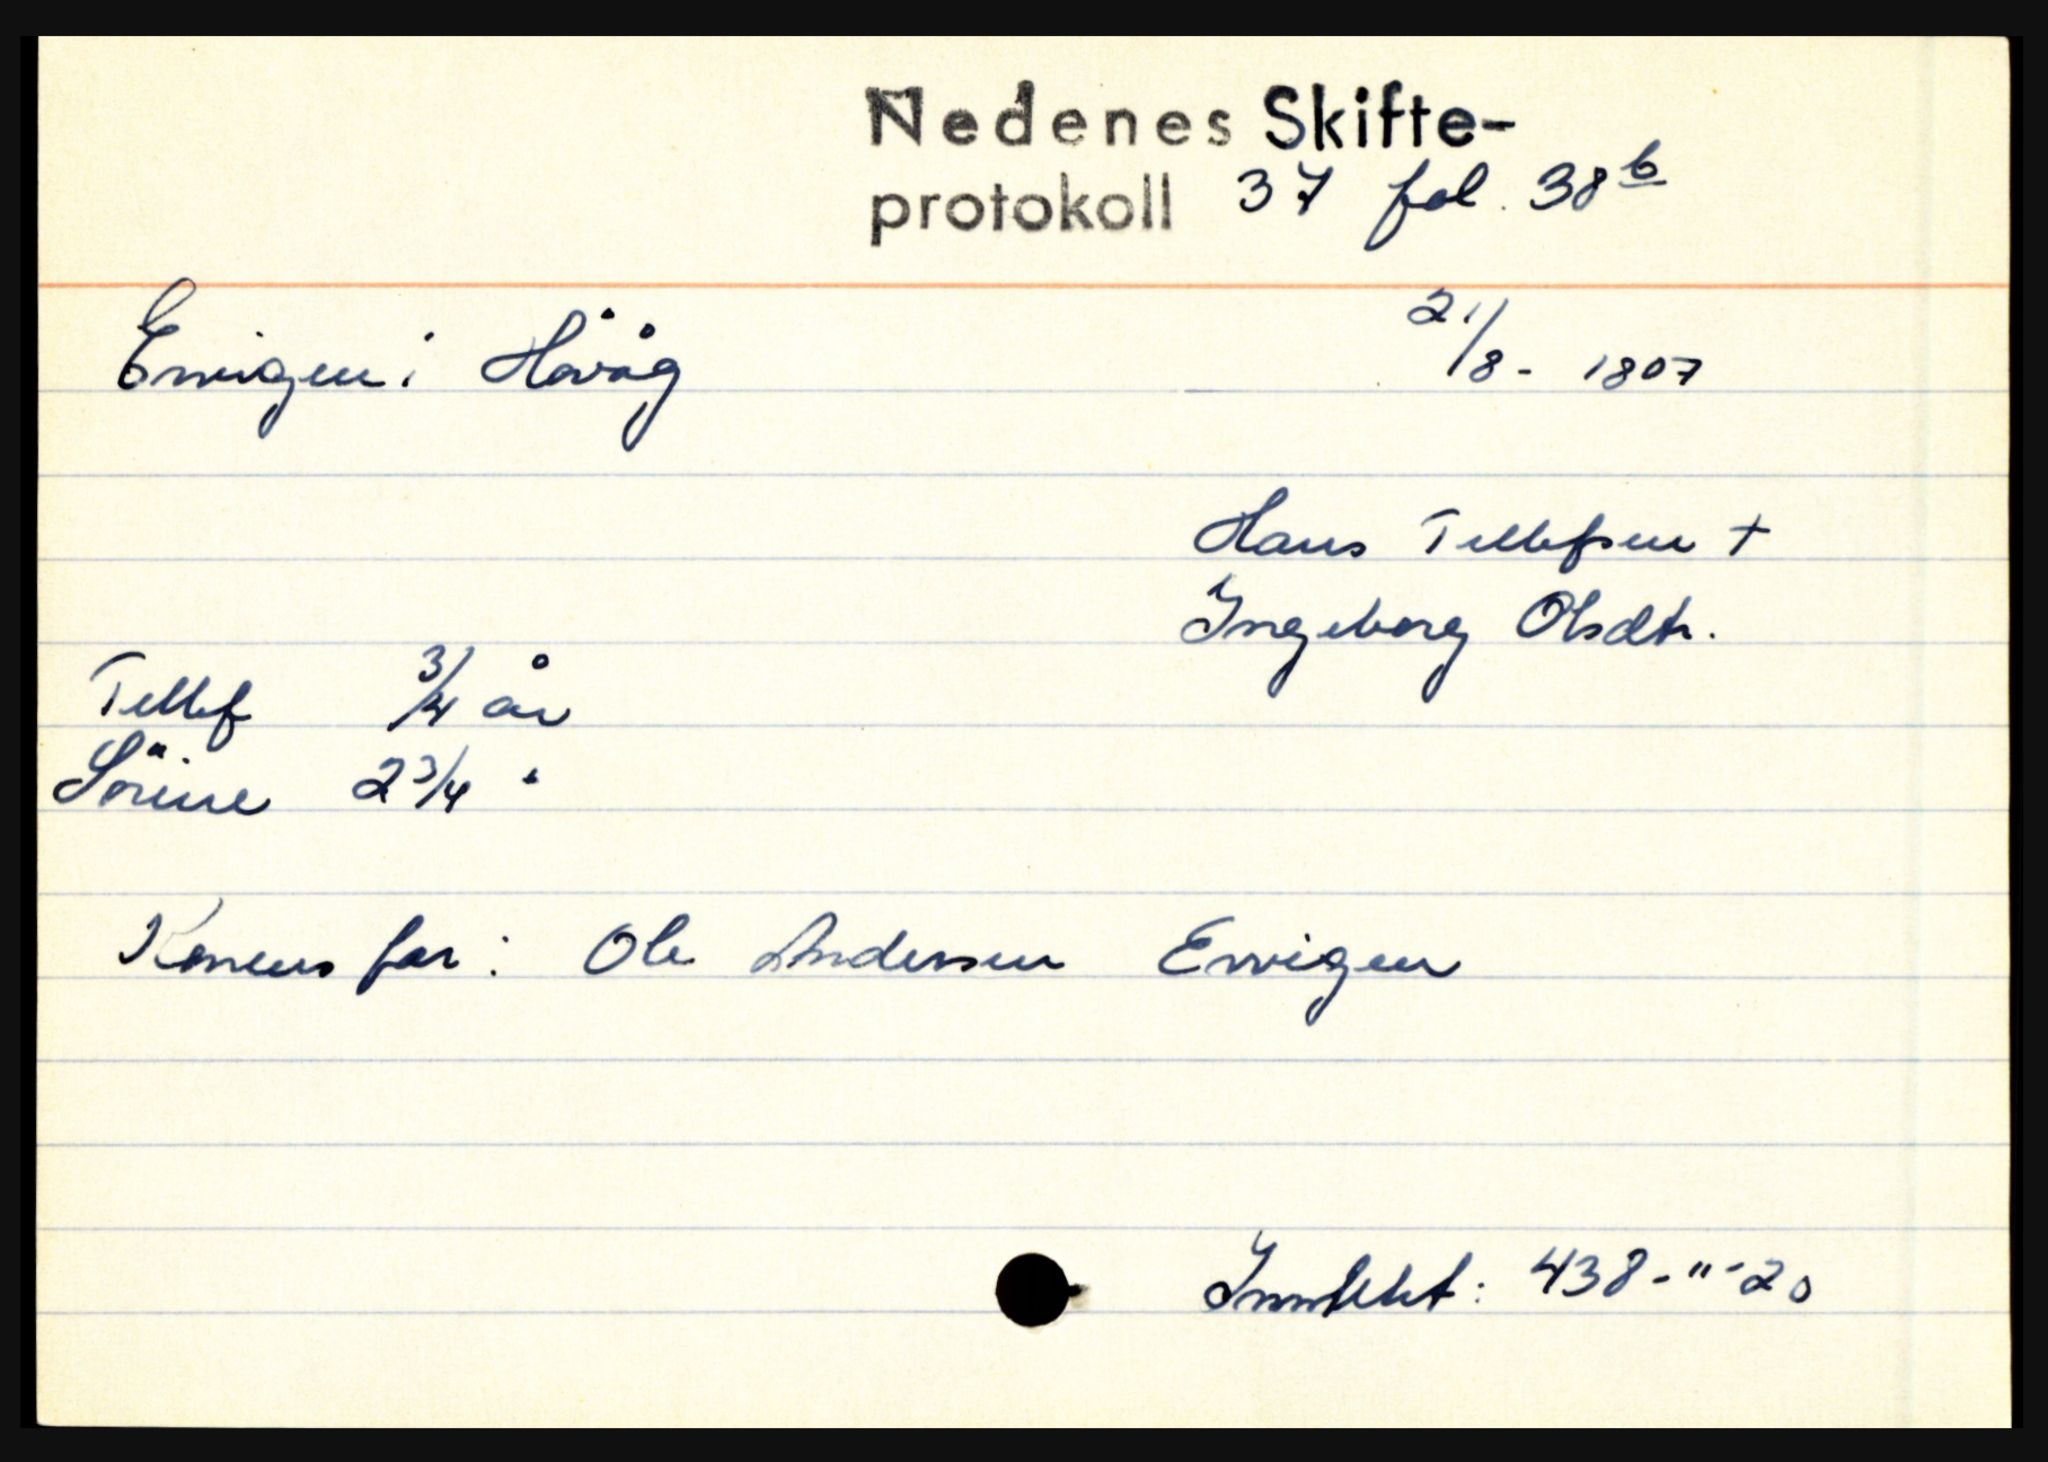 Nedenes Skifte-
protokoll 37 fol. 38b
Ervigen i Høvåg 21/8 - 1807
Hans Tellefsen +
Ingeborg Olsdtr.
Tellef 3/4 år
Sörine 2 3/4 "
Konens far: Ole Andersen Ervigen
438-"-20